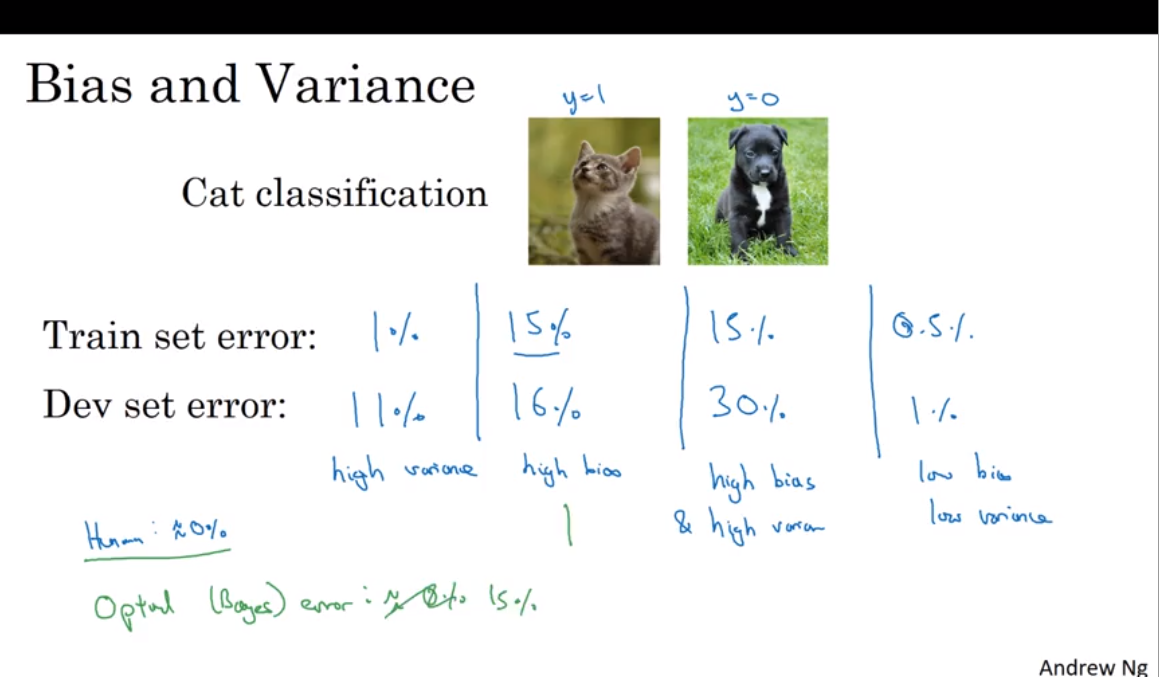 Bias and Variance
y=1 y=0
Cat classification
Train set error: 1% 15% 15% 0.5%
Dev set error: 11% 16% 30% 1%
high variance high bias high bias low bias
& high low variance
Human: ≈0%
(Bayes) error: ≈0% 15%
Andrew Ng